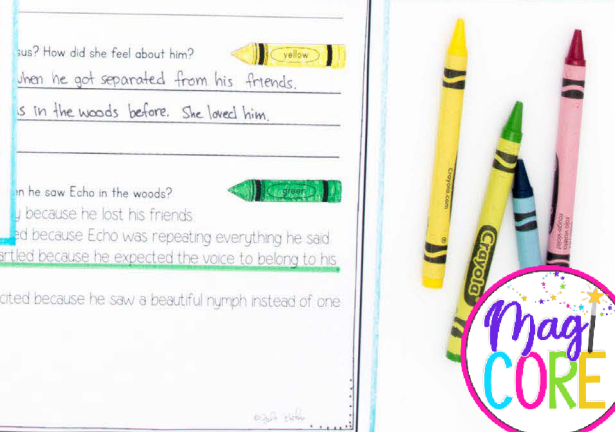 sus? How did she feel about him?
yellow
when he got separated from his friends.
s in the woods before. She loved him.
en he saw Echo in the woods?
green
y because he lost his friends
ed because Echo was repeating everything he said
artled because he expected the voice to belong to his
cited because he saw a beautiful nymph instead of one
Crayola.com
Crayola
Mag
CORE